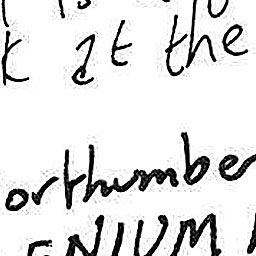 k at the
orthumber
ENIUM